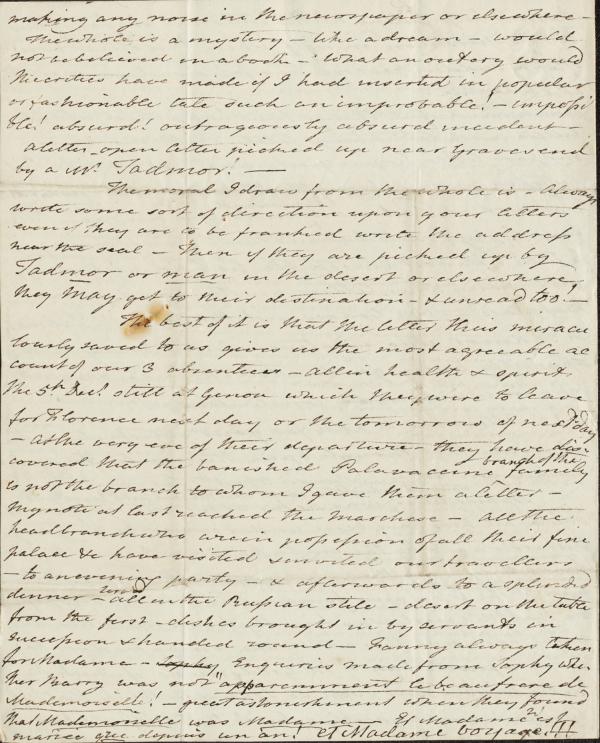 making any noise in the newspaper or elsewhere -
The whole is a mystery - like a dream - would
not be believed in a book - What an outcry would
the critics have made if I had inserted in popular
or fashionable tale such an improbable! - impossi
ble! absurd! outrageously absurd incident -
a letter - open letter picked up near Gravesend
by a Mr. Tadmor! -
The moral I draw from the whole is - Always
write some sort of direction upon your letters
even if they are to be franked write the address
near the seal - Then if they are picked up by
Tadmor or man in the desert or elsewhere
they may get to their destination - & unread too! -
The best of it is that the letter thus miracu
lously saved to us gives us the most agreeable ac
count of our 3 absentees - all in health & spirits
the 5th Decr. still at Genoa which they were to leave
for Florence next day or the tomorrow of next day
- At the very eve of their departure - they have dis-
covered that the banished Palavaccine branch of the family
is not the branch to whom I gave them a letter -
My note at last reached the Marchese - all the
head branch who are in possession of all their fine
palace &c have visited & invited our travellers
- to an evening party - & afterwards to a splendid
dinner - all in the Russian stile - desert on the table
from the first - dishes brought in by servants in
succession & handed round - Fanny always taken
for Madame - Sophy Enquiries made from Sophy whe
ther Harry was not "apparemment le beau frere de
Mademoiselle! - great astonishment when they found
that Mademoiselle was Madame - Et Madame est
mariée que depuis un an! et Madame voyage!!!